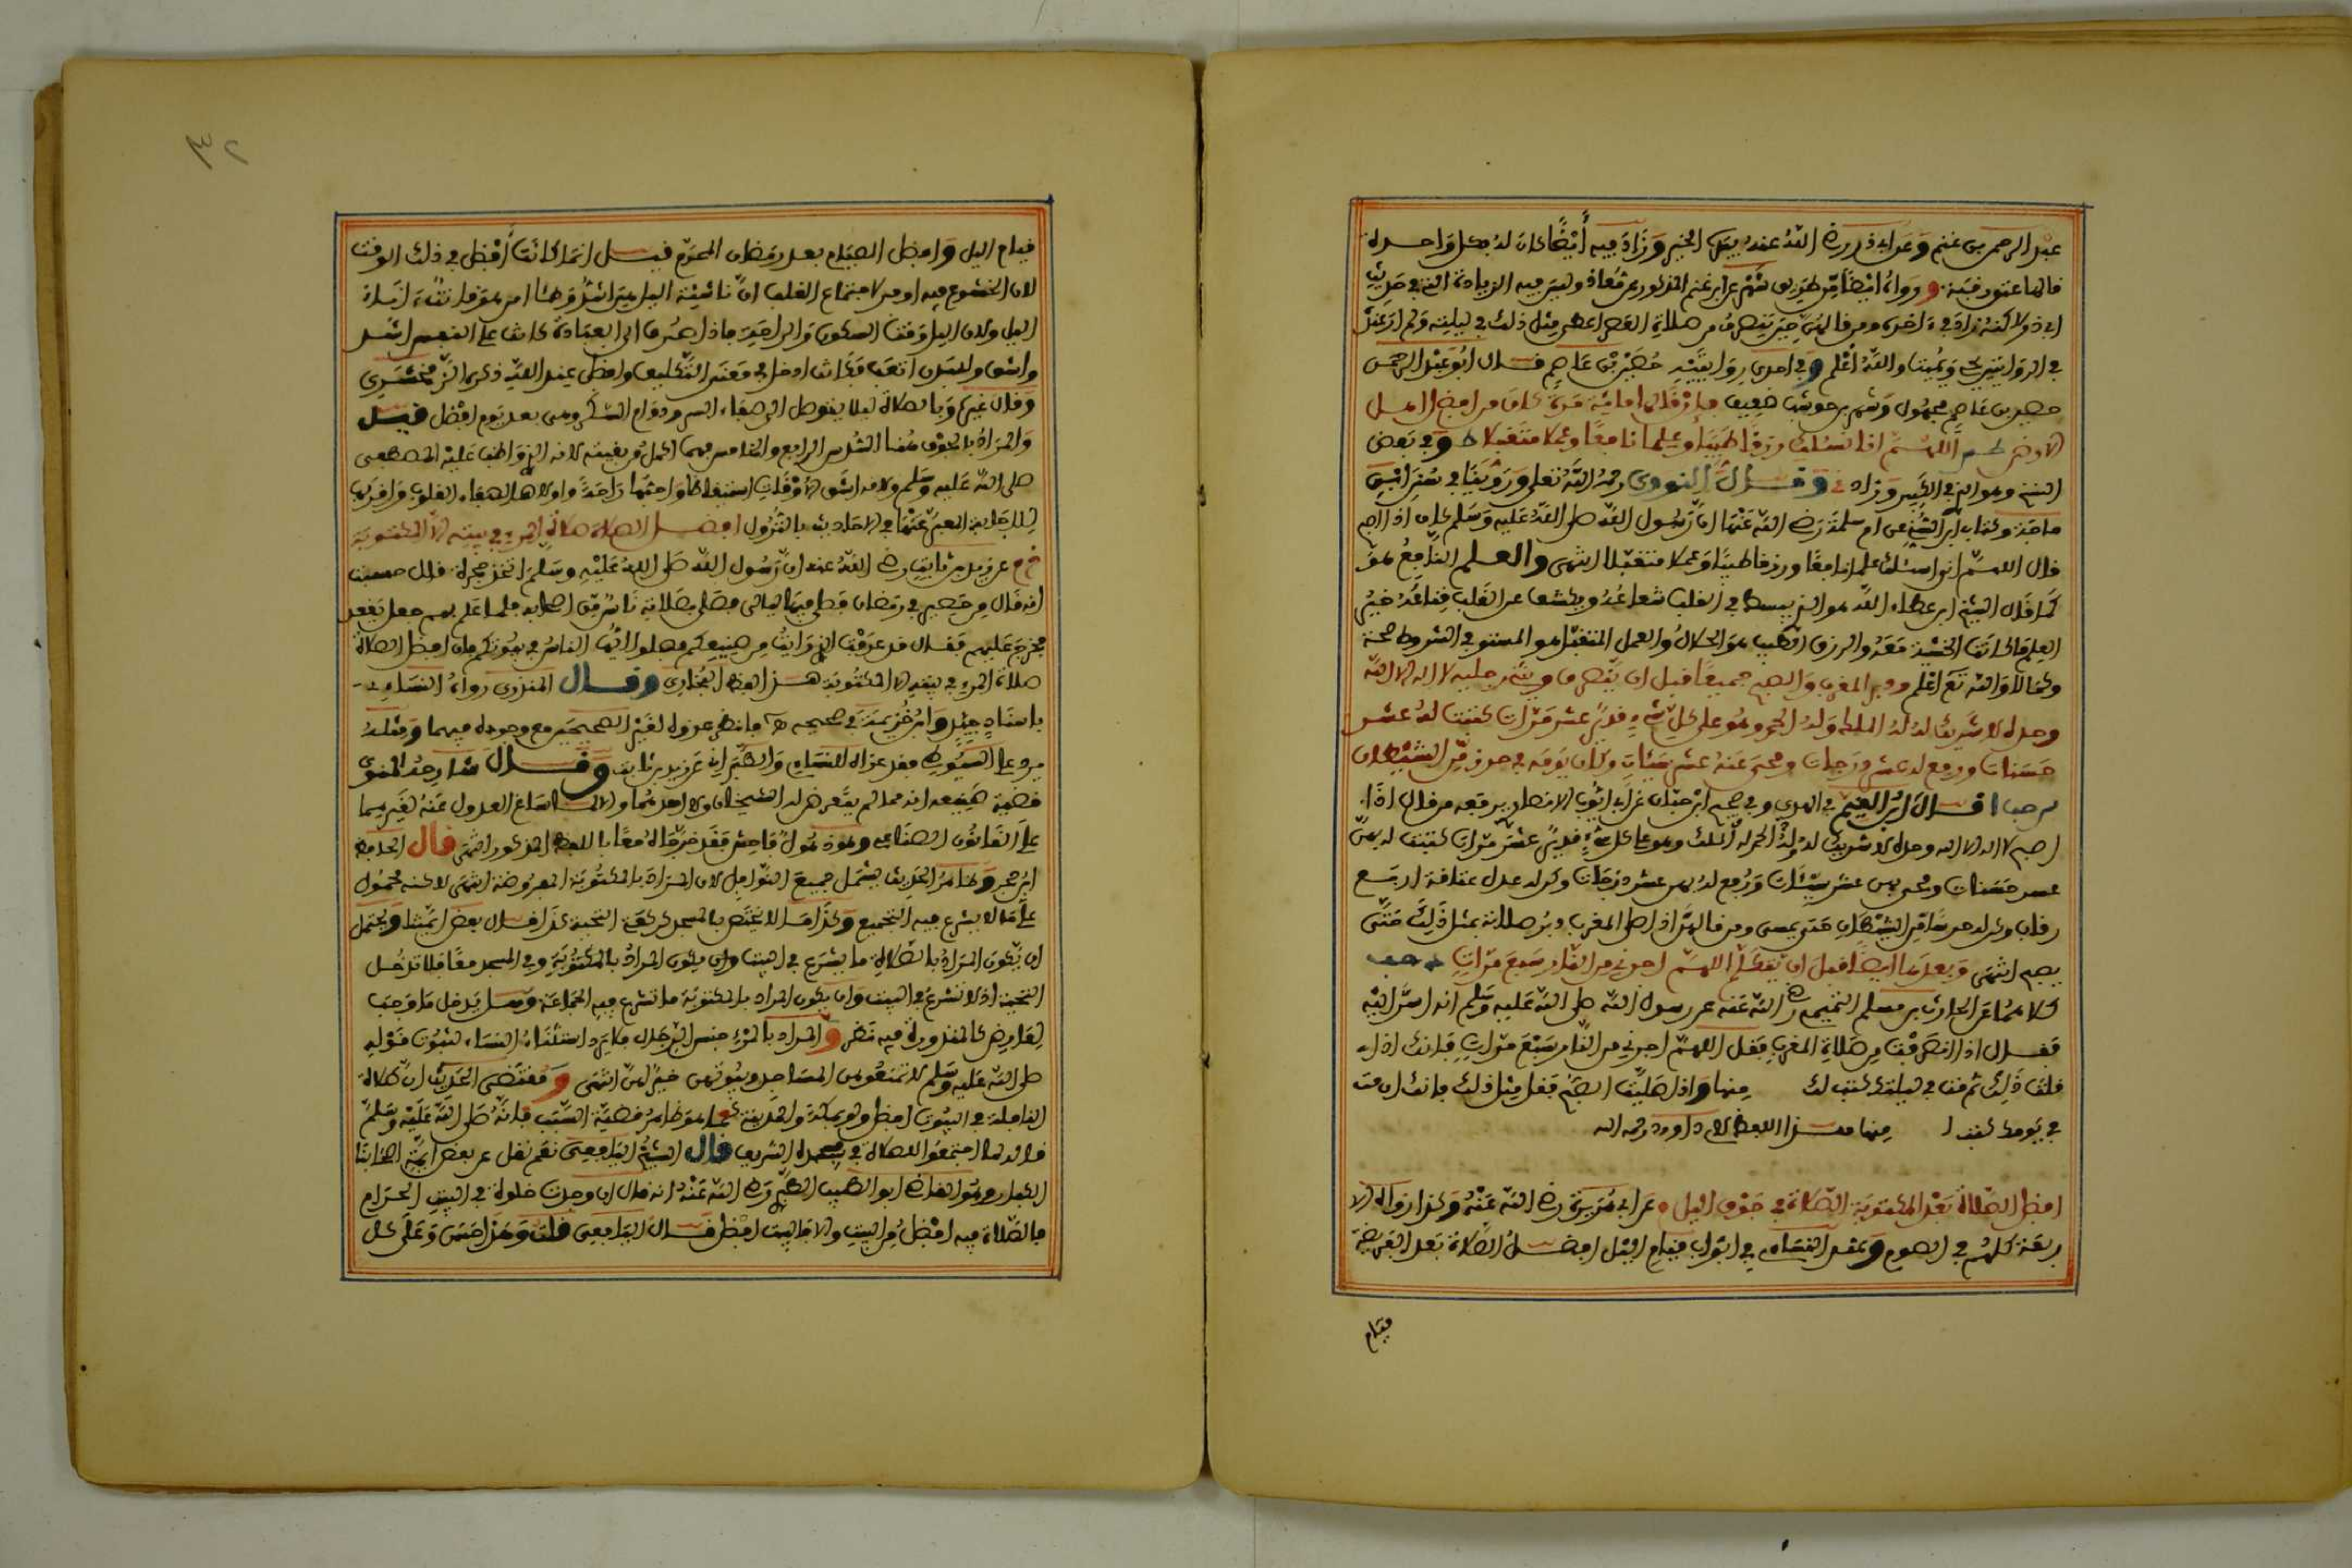 عبد الرحمن بن غنم وعن ابي ذر رضي الله عنه بمثل الخبر وزاد فيه أيضا كان له بكل واحدة
قالها عتق رقبة و رواه ايضا من طريق شهر عن ابن غنم المذكور عن معاذ وليس فيه الزيادة التي في حديث
ابي ذر لاكنه زاد في اخره ومن قالهن حين ينصرف من صلاة العصر اعطي مثل ذلك في ليلته ولم
في الروايتين يحي ويميت والله أعلم وفي احدى روايتيه حصين بن عاصم قال ابو عبد الرحمن
حصين بن عاصم مجهول وشهر بن حوشب ضعيف
اللهم اني اسئلك رزقا طيبا وعلما نافعا وعملا متقبلا ط وفي بعض
النسخ وهو الذي في الكبير وزاد وقال النووي رحمه الله تعلى وروينا في سنن ابن
ماجة وكتاب ابن السني عن ام سلمة رضي الله عنها ان رسول الله صلى الله عليه وسلم كان اذا اصبح
قال اللهم اني اسئلك علما نافعا ورزقا طيبا وعملا متقبلا انتهى والعلم النافع هو
كما قال الشيخ ابن عطاء الله هو الذي ينبسط في القلب شعاعه ويكشف عن القلب قناعه خير
العلم ما كانت الخشية معه والرزق الطيب هو الحلال والعمل المتقبل هو المستوفي الشروط صحة
وكمالا والله تع اعلم و المغرب والصبح جميعا قبل ان ينصرف ويثني رجليه لا اله الا الله
وحده لا شريك له له الملك وله الحمد وهو على كل شيء قدير عشر مرات كتبت له عشر
حسنات ورفع له عشر درجات ومحي عنه عشر سيئات وكان يومه في حرز من الشيطان
قال ابن القيم في الهدي وفي صحيح ابن حبان عن ابي ايوب الانصاري يرفعه من قال اذا
اصبح لا اله الا الله وحده لا شريك له له الملك وله الحمد وهو على كل شيء قدير عشر مرات كتبت له بهن
عشر حسنات ومحي بهن عشر سيئات ورفع له بهن عشر درجات وكن له عدل عتاقة اربع
رقاب وكن له حرسا من الشيطان حتى يمسي ومن قالهن اذا صلى المغرب دبر صلاته بمثل ذلك حتى
يصبح انتهى وبعدهما ايضا قبل ان يتكلم اللهم اجرني من النار سبع مرات
كلاهما عن الحارث بن مسلم التميمي رضي الله عنه عن رسول الله صلى الله عليه وسلم انه اسر اليه
فقال اذا انصرفت من صلاة المغرب فقل اللهم اجرني من النار سبع مرات فانك اذا
قلت ذلك ثم مت في ليلتك كتب لك منها واذا صليت الصبح فقل مثل ذلك فانك ان مت
في يومك كتب لك منها هذا اللفظ لابي داوود رحمه الله
افضل الصلاة بعد المكتوبة الصلاة في جوف اليل عن ابي هريرة رضي الله عنه وكذا رواه الا
ربعة كلهم في الصوم وعند النساءي في ابواب قيام اليل افضل الصلاة بعد الفريضة
فيام
قيام اليل وافضل الصيام بعد رمضان المحرم قيل انما كانت أفضل في ذلك الوقت
لان الخشوع فيه اوفر لاجتماع القلب ان ناشئة اليل هي اشد وطئا امن هو قانت ءاناء
اليل ولان اليل وقت السكون والراحة فاذا صرف الى العبادة كانت على النفس اشد
واشق وللبدن اتعب فكانت ادخل في معنى التكليف وافضل عند الله ذكره الزمخشري
وقال غيره وبالصلاة ليلا يتوصل الى صفاء السر ودوام الشكر ومن بعد يوم افضل قيل
والمراد بالجوف هنا السدس الرابع والخامس فهما اكمل من بقيته لانه الذي واظب عليه المصطفى
صلى الله عليه وسلم ولانه اشق الاوقات استيقاظا واحبها راحة واولاها لصفاء القلوب واقربها
للاجابة المعبر عنها في الاحاديث بالنزول افضل الصلاة صلاة المرء في بيته الا المكتوبة
خ م عن زيد بن ثابت رضي الله عنه ان رسول الله صلى الله عليه وسلم اتخذ حجرة قال حسبت
انه قال من حصير في رمضان فصلى فيها ليالي فصلى بصلاته ناس من اصحابه فلما علم بهم جعل يقعد
فخرج عليهم فقال قد عرفت الذي رايت من صنيعكم فصلوا ايها الناس في بيوتكم فان افضل الصلاة
صلاة المرء في بيته الا المكتوبة هذا لفظ البخاري وقال المنذري رواه النساءي
باسناد جيد وابن خزيمة في صحيحه فانظر عزوه لغير الصحيحين مع وجوده فيهما ومثله
يرد على السيوطي فقد عزاه للنساءي والطبراني عن زيد بن ثابت وقال شارحه المنوي
قضية صنيعه انه مما لم يتعرض له الشيخان ولا احدهما والا لما ساغ العدول عنه لغيرهما
على القانون الصناعي وهو ذهول فاحش فقد خرجاه معا باللفظ المذكور انتهى قال الحافظ
ابن حجر وظاهر الحديث يشمل جميع النوافل لان المراد بالمكتوبة المفروضة انتهى لاكنه محمول
على ما لا يشرع فيه التجميع وكذا ما لا يختص بالمسجد كركعتي التحية كذا قال بعض ايمتنا ويحتمل
ان يكون المراد بالصلاة ما يشرع في البيت وان يكون المراد بالمكتوبة وفي المسجد معا فلا تدخل
التحية اذ لا تشرع في البيت وان يكون المراد بالمكتوبة ما تشرع فيه الجماعة وهل يدخل ما وجب
لعارض كالمنذورة فيه نظر والمراد بالمرء جنس الرجال فلا يرد استثناء النساء لثبوت قوله
صلى الله عليه وسلم لا تمنعوهن المساجد وبيوتهن خير لهن انتهى و مقتضى الحديث ان صلاة
النافلة في البيوت افضل ولو بمكة والمدينة كما هو ظاهر قضية السبب فانه صلى الله عليه وسلم
قاله لما اجتمعوا للصلاة في مسجده الشريف قال الشيخ اليافعي نعم نقل عن بعض ايمة اصحابنا
الكبار وهو القاضي ابو الطيب الطبري رضي الله عنه انه قال ان وجدت خلوة في البيت الحرام
فالصلاة فيه افضل من البيت والا فالبيت افضل قال اليافعي قلت وهذا حسن وعلى كل